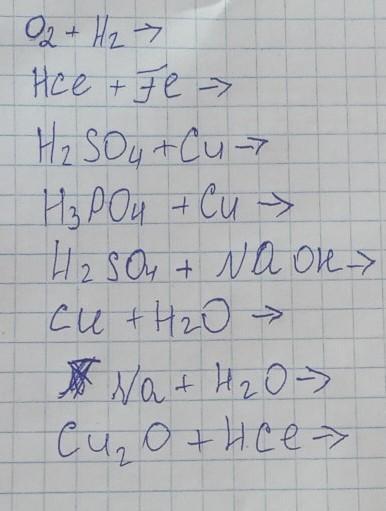 O₂ + H₂ →
HCl + Fe →
H₂SO₄ + Cu →
H₃PO₄ + Cu →
H₂SO₄ + NaOH →
Cu + H₂O →
Na + H₂O →
Cu₂O + HCl →